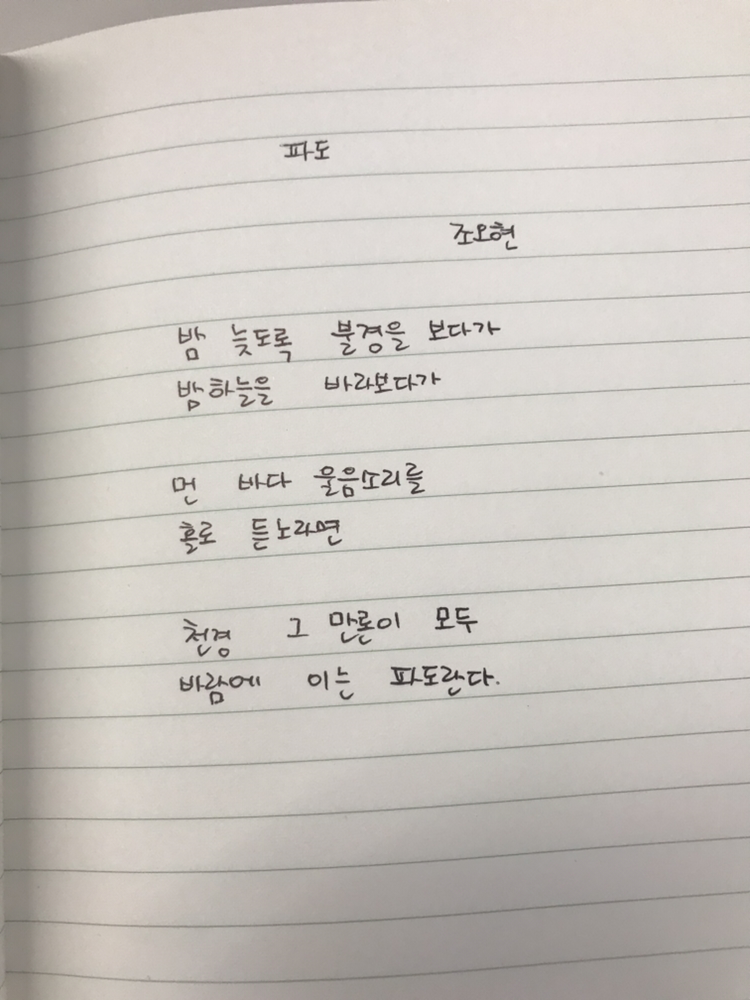 파도
조오현
밤 늦도록 불경을 보다가
밤하늘을 바라보다가
먼 바다 울음소리를
홀로 듣노라면
천경 그 만론이 모두
바람에 이는 파도란다.